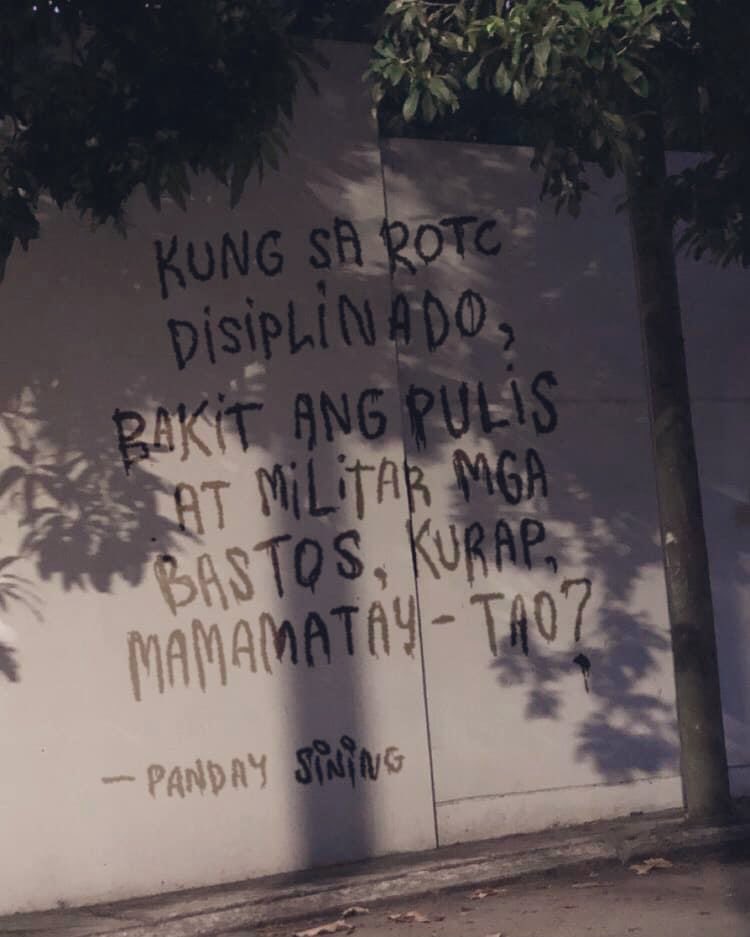 KUNG SA ROTC
DiSiPLiNADO,
BAKiT ANG PULiS
AT MiLiTAR MGA
BASTOS, KURAP,
MAMAMATAY-TAO?
- PANDAY SiNiNG